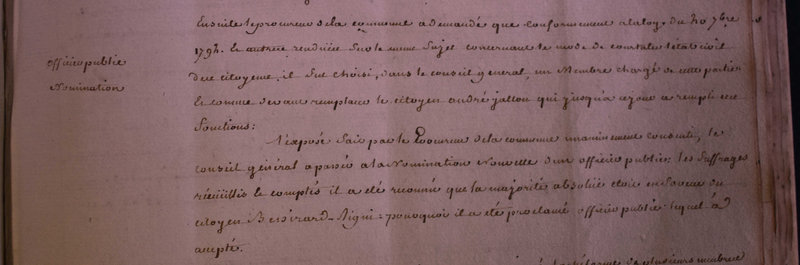 Ensuite le procureur de la commune a demandé que conformement a la loy du 20 7bre
1792. Et autres rendues sur le même sujet concernant le mode de constater l'état civil
officier public
des citoyens, il fut choisi, dans le conseil general, un Membre chargé de cette partie
Nomination
Et comme devant remplacer le citoyen andré jallon qui jusqu'a ce jour a rempli ces
fonctions:
l'exposé fait par le Procureur de la commune unanimement consenti, le
conseil général a passé a la Nomination Nouvelle d'un officier public; les suffrages
réceüillis & comptés il a été reconnu que la majorité absolue etoit en faveur du
citoyen Signi: pourquoi il a été proclamé officier public lequel a
accepté.
de plusieurs membres